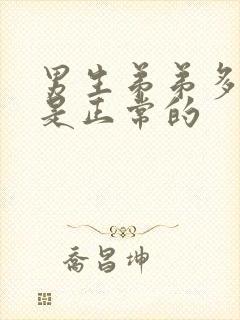 男生弟弟多
是正常的
喬昌坤